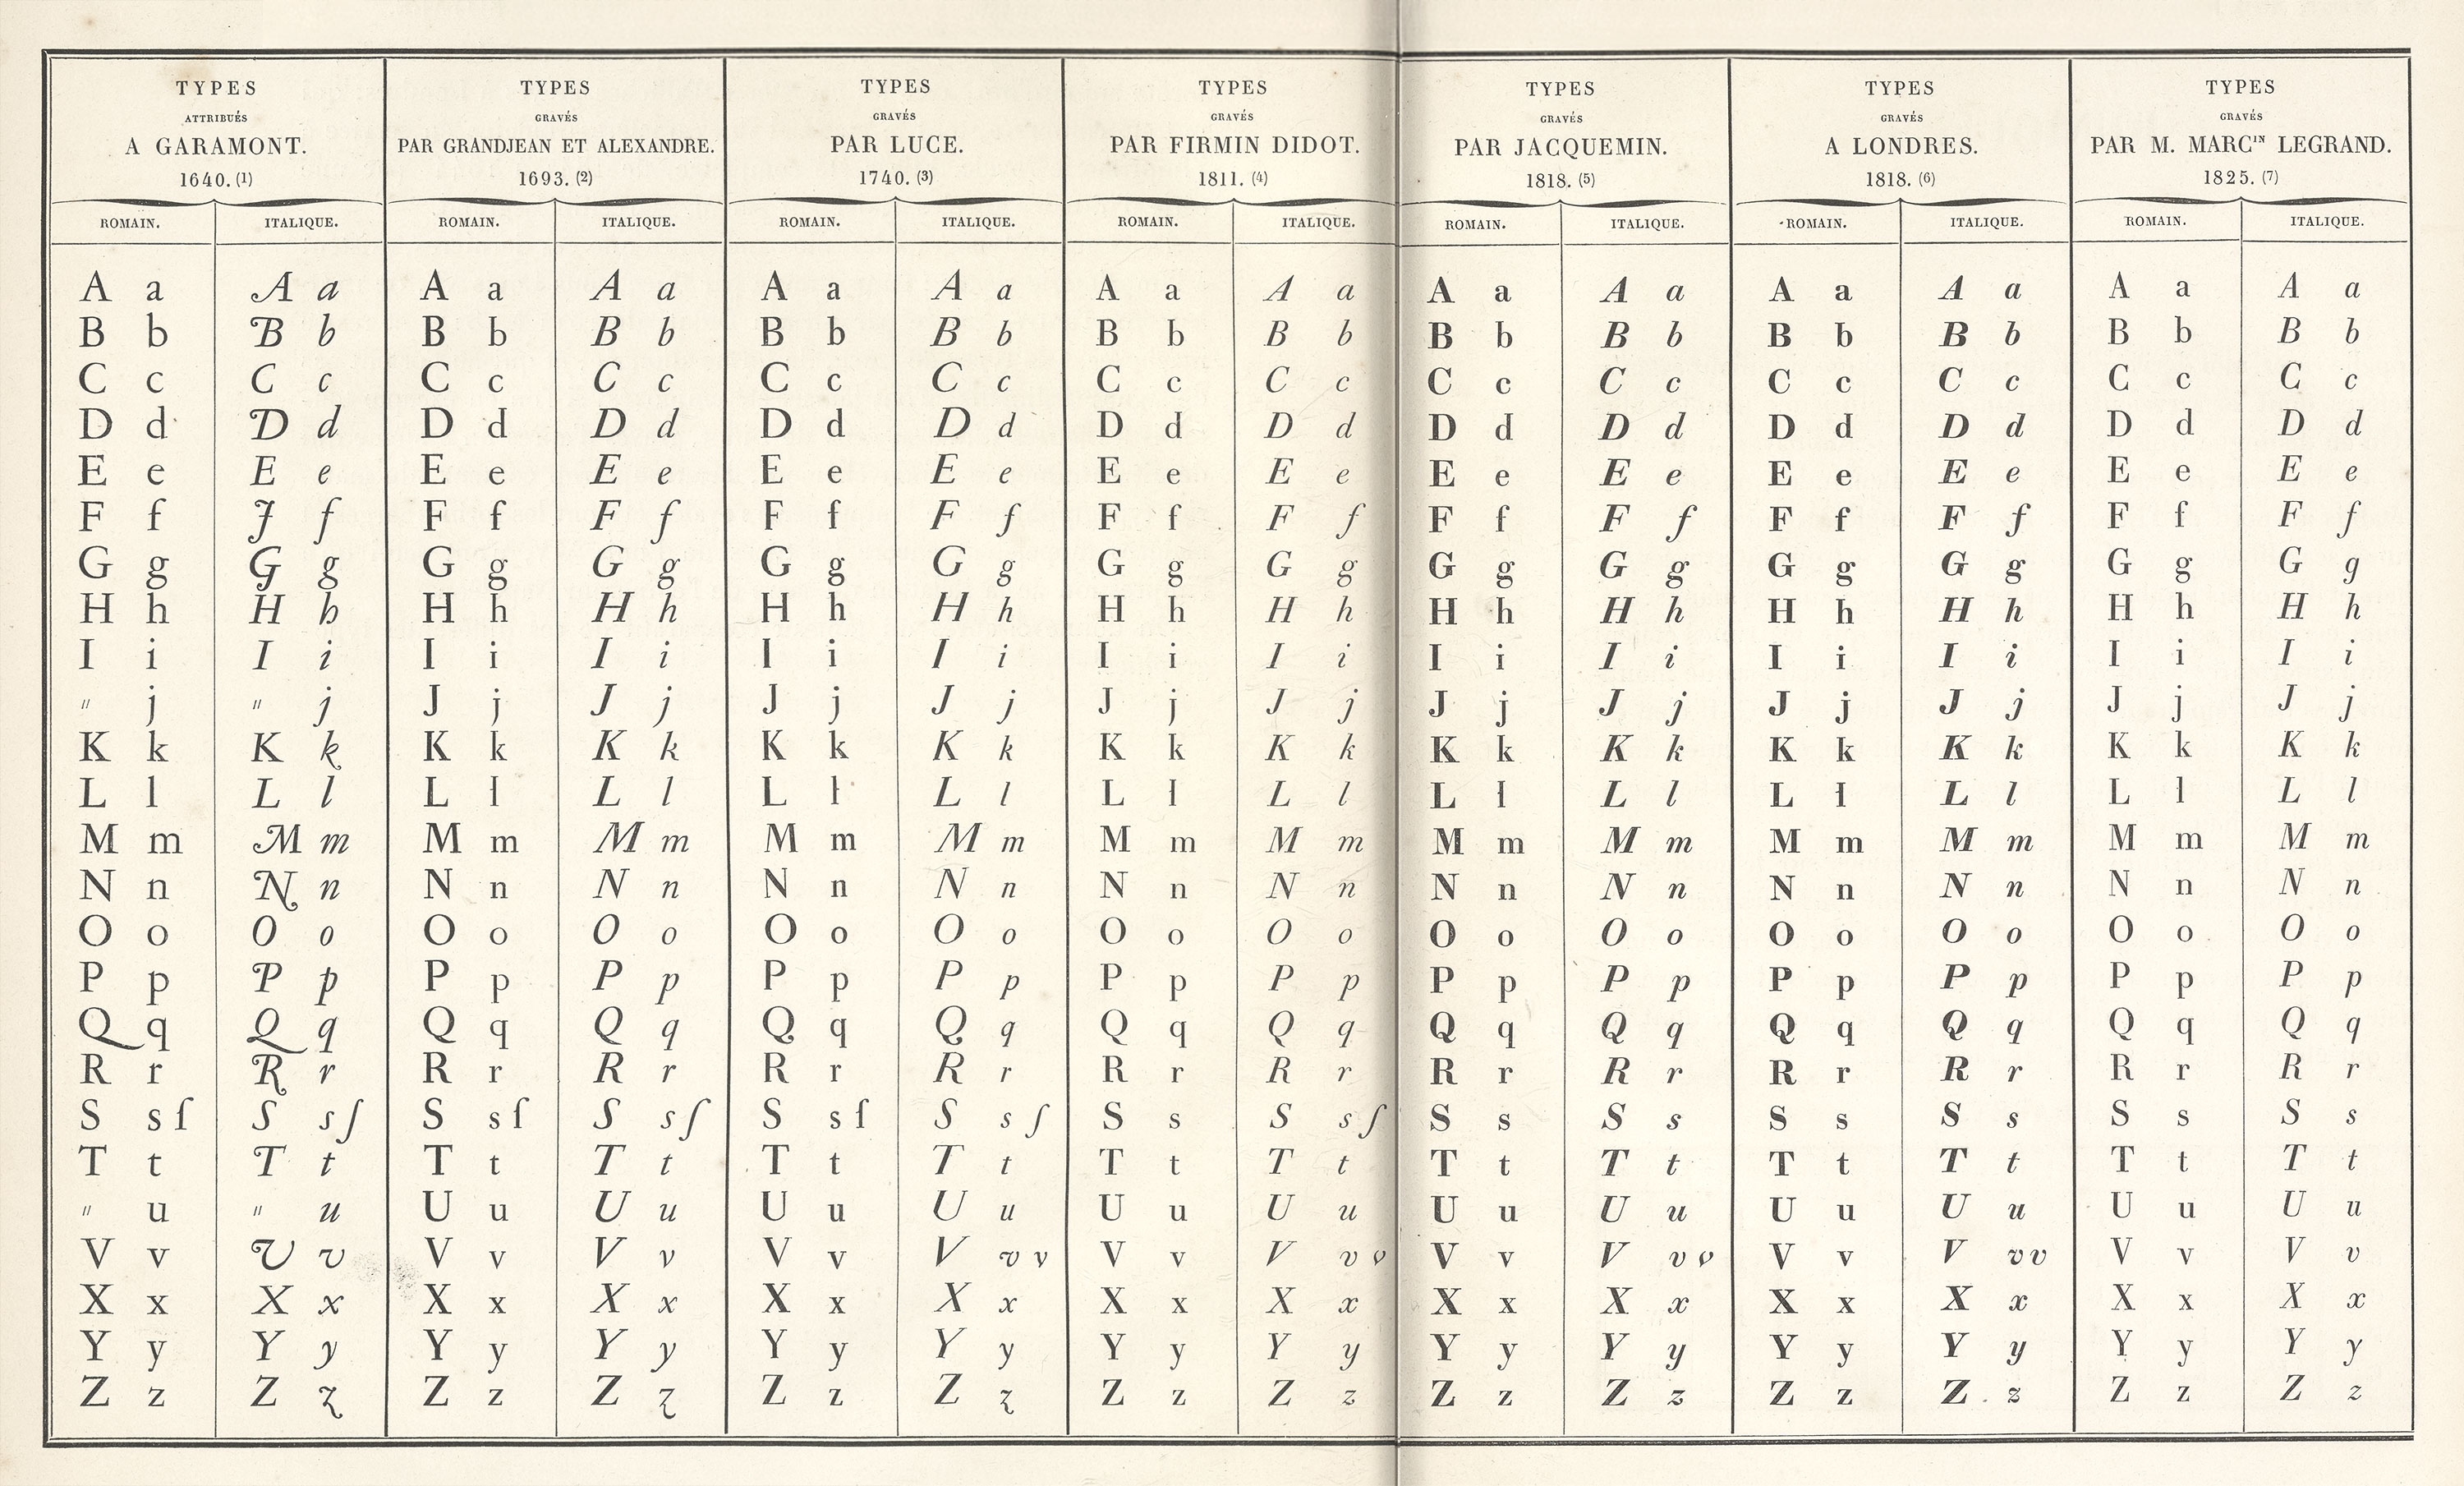 TYPES TYPES TYPES TYPES TYPES TYPES TYPES
ATTRIBUÉS GRAVÉS GRAVÉS GRAVÉS GRAVÉS GRAVÉS GRAVÉS
A GARAMONT. PAR GRANDJEAN ET ALEXANDRE. PAR LUCE. PAR FIRMIN DIDOT. PAR JACQUEMIN. A LONDRES. PAR M. MARCᴵᴺ LEGRAND.
1640. (1) 1693. (2) 1740. (3) 1811. (4) 1818. (5) 1818. (6) 1825. (7)
ROMAIN. ITALIQUE. ROMAIN. ITALIQUE. ROMAIN. ITALIQUE. ROMAIN. ITALIQUE. ROMAIN. ITALIQUE. ROMAIN. ITALIQUE. ROMAIN. ITALIQUE.
A a A a A a A a A a A a A a A a A a A a A a A a A a A a
B b B b B b B b B b B b B b B b B b B b B b B b B b B b
C c C c C c C c C c C c C c C c C c C c C c C c C c C c
D d D d D d D d D d D d D d D d D d D d D d D d D d D d
E e E e E e E e E e E e E e E e E e E e E e E e E e E e
F f F f F f F f F f F f F f F f F f F f F f F f F f F f
G g G g G g G g G g G g G g G g G g G g G g G g G g G g
H h H h H h H h H h H h H h H h H h H h H h H h H h H h
I i I i I i I i I i I i I i I i I i I i I i I i I i I i
" j " j J j J j J j J j J j J j J j J j J j J j J j J j
K k K k K k K k K k K k K k K k K k K k K k K k K k K k
L l L l L l L l L l L l L l L l L l L l L l L l L l L l
M m M m M m M m M m M m M m M m M m M m M m M m M m M m
N n N n N n N n N n N n N n N n N n N n N n N n N n N n
O o O o O o O o O o O o O o O o O o O o O o O o O o O o
P p P p P p P p P p P p P p P p P p P p P p P p P p P p
Q q Q q Q q Q q Q q Q q Q q Q q Q q Q q Q q Q q Q q Q q
R r R r R r R r R r R r R r R r R r R r R r R r R r R r
S s ſ S s ſ S s ſ S s ſ S s ſ S s ſ S s S s ſ S s S s S s S s S s S s
T t T t T t T t T t T t T t T t T t T t T t T t T t T t
" u " u U u U u U u U u U u U u U u U u U u U u U u U u
V v V v V v V v V v V v v V v V v v V v V v v V v V v v V v V v
X x X x X x X x X x X x X x X x X x X x X x X x X x X x
Y y Y y Y y Y y Y y Y y Y y Y y Y y Y y Y y Y y Y y Y y
Z z Z z Z z Z z Z z Z z Z z Z z Z z Z z Z z Z z Z z Z z